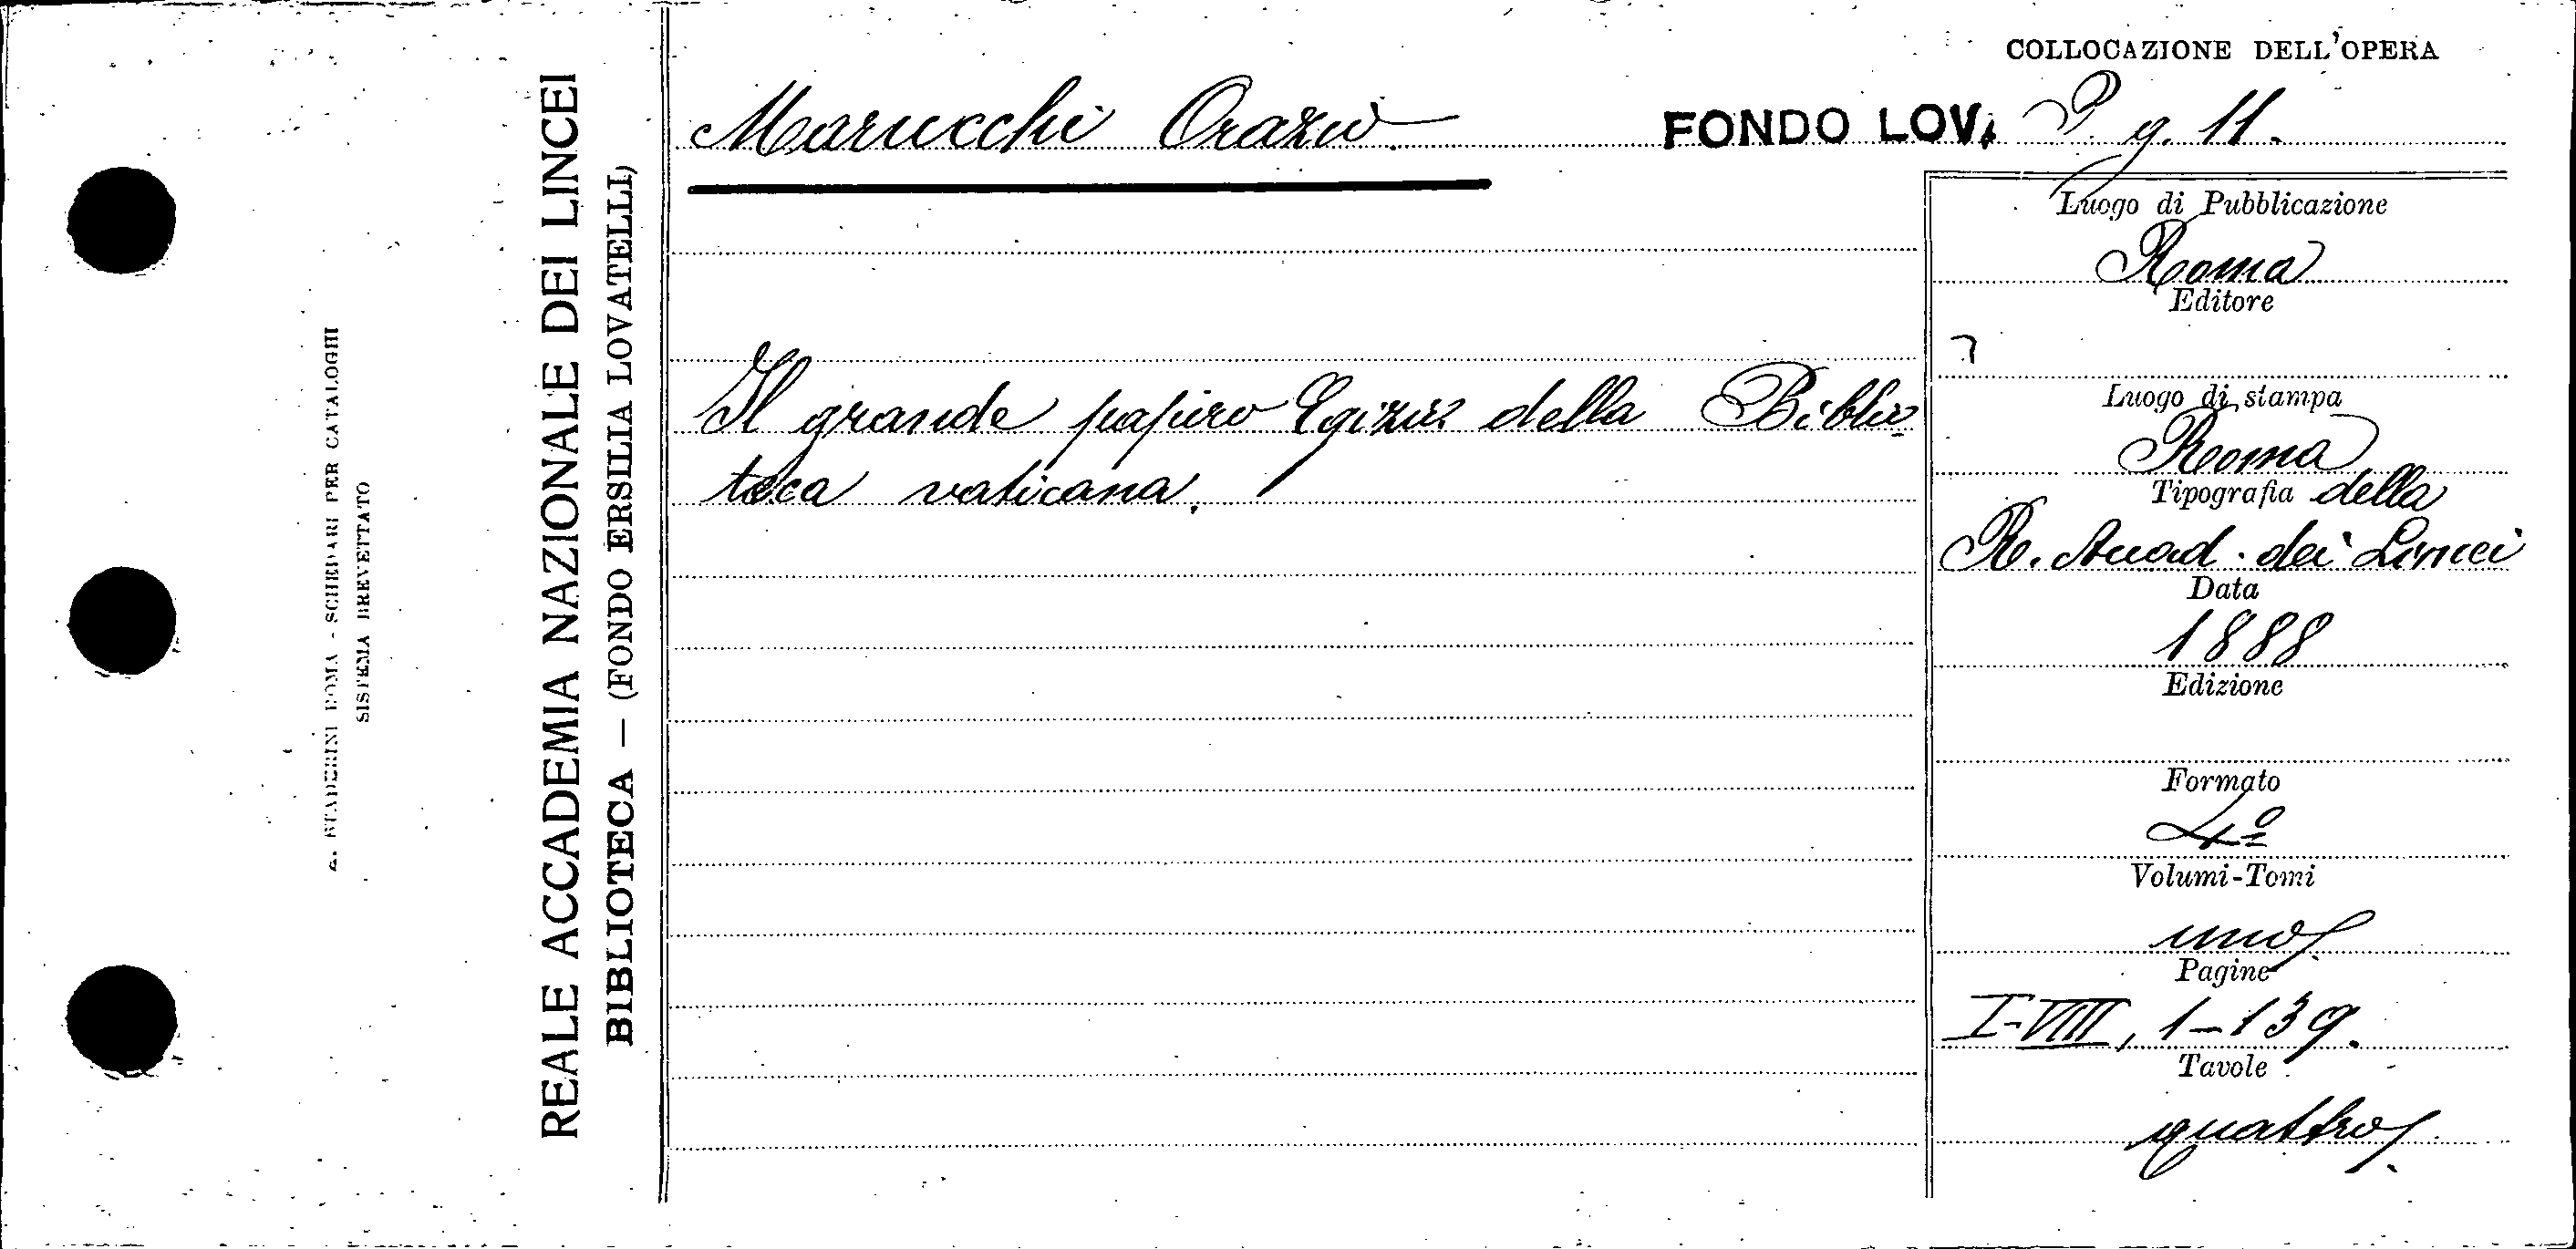 COLLOCAZIONE DELL'OPERA
Marucchi Orazio.
FONDO LOV. P. g. 11.
Il grande papiro Egizio della Biblio
teca vaticana.
Luogo di Pubblicazione
Roma
Editore
Luogo di stampa
Roma
Tipografia della
R. Accad. dei Lincei
Data
1888
Edizione
Formato
4º
Volumi-Tomi
uno
Pagine
I-VIII, 1-139.
Tavole
quattro
REALE ACCADEMIA NAZIONALE DEI LINCEI
BIBLIOTECA — (FONDO ERSILIA LOVATELLI)
STADERINI ROMA - SCHEDARI PER CATALOGHI
SISTEMA BREVETTATO